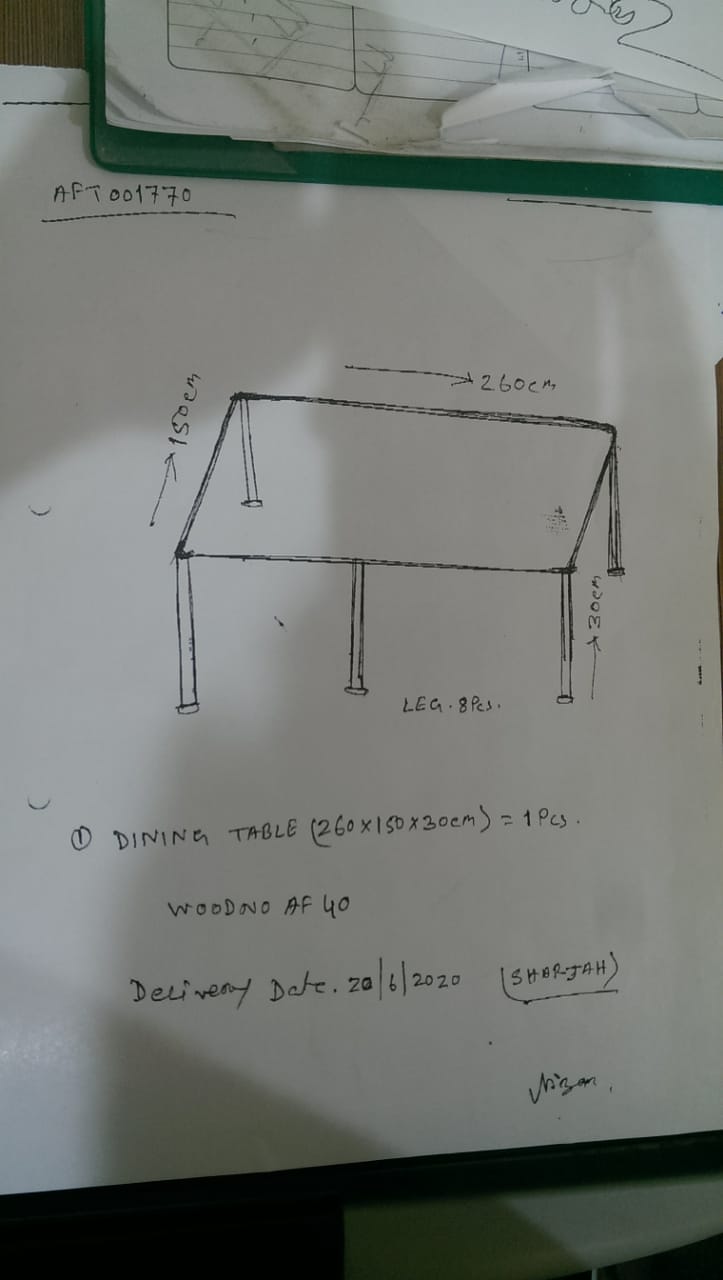 AFT001770
260cm
150cm
30cm
LEG. 8Pcs.
① DINING TABLE (260x150x30cm) = 1 Pcs.
WOODNO AF 40
Delivery Date. 20/6/2020 (SHARJAH)
Nizam.